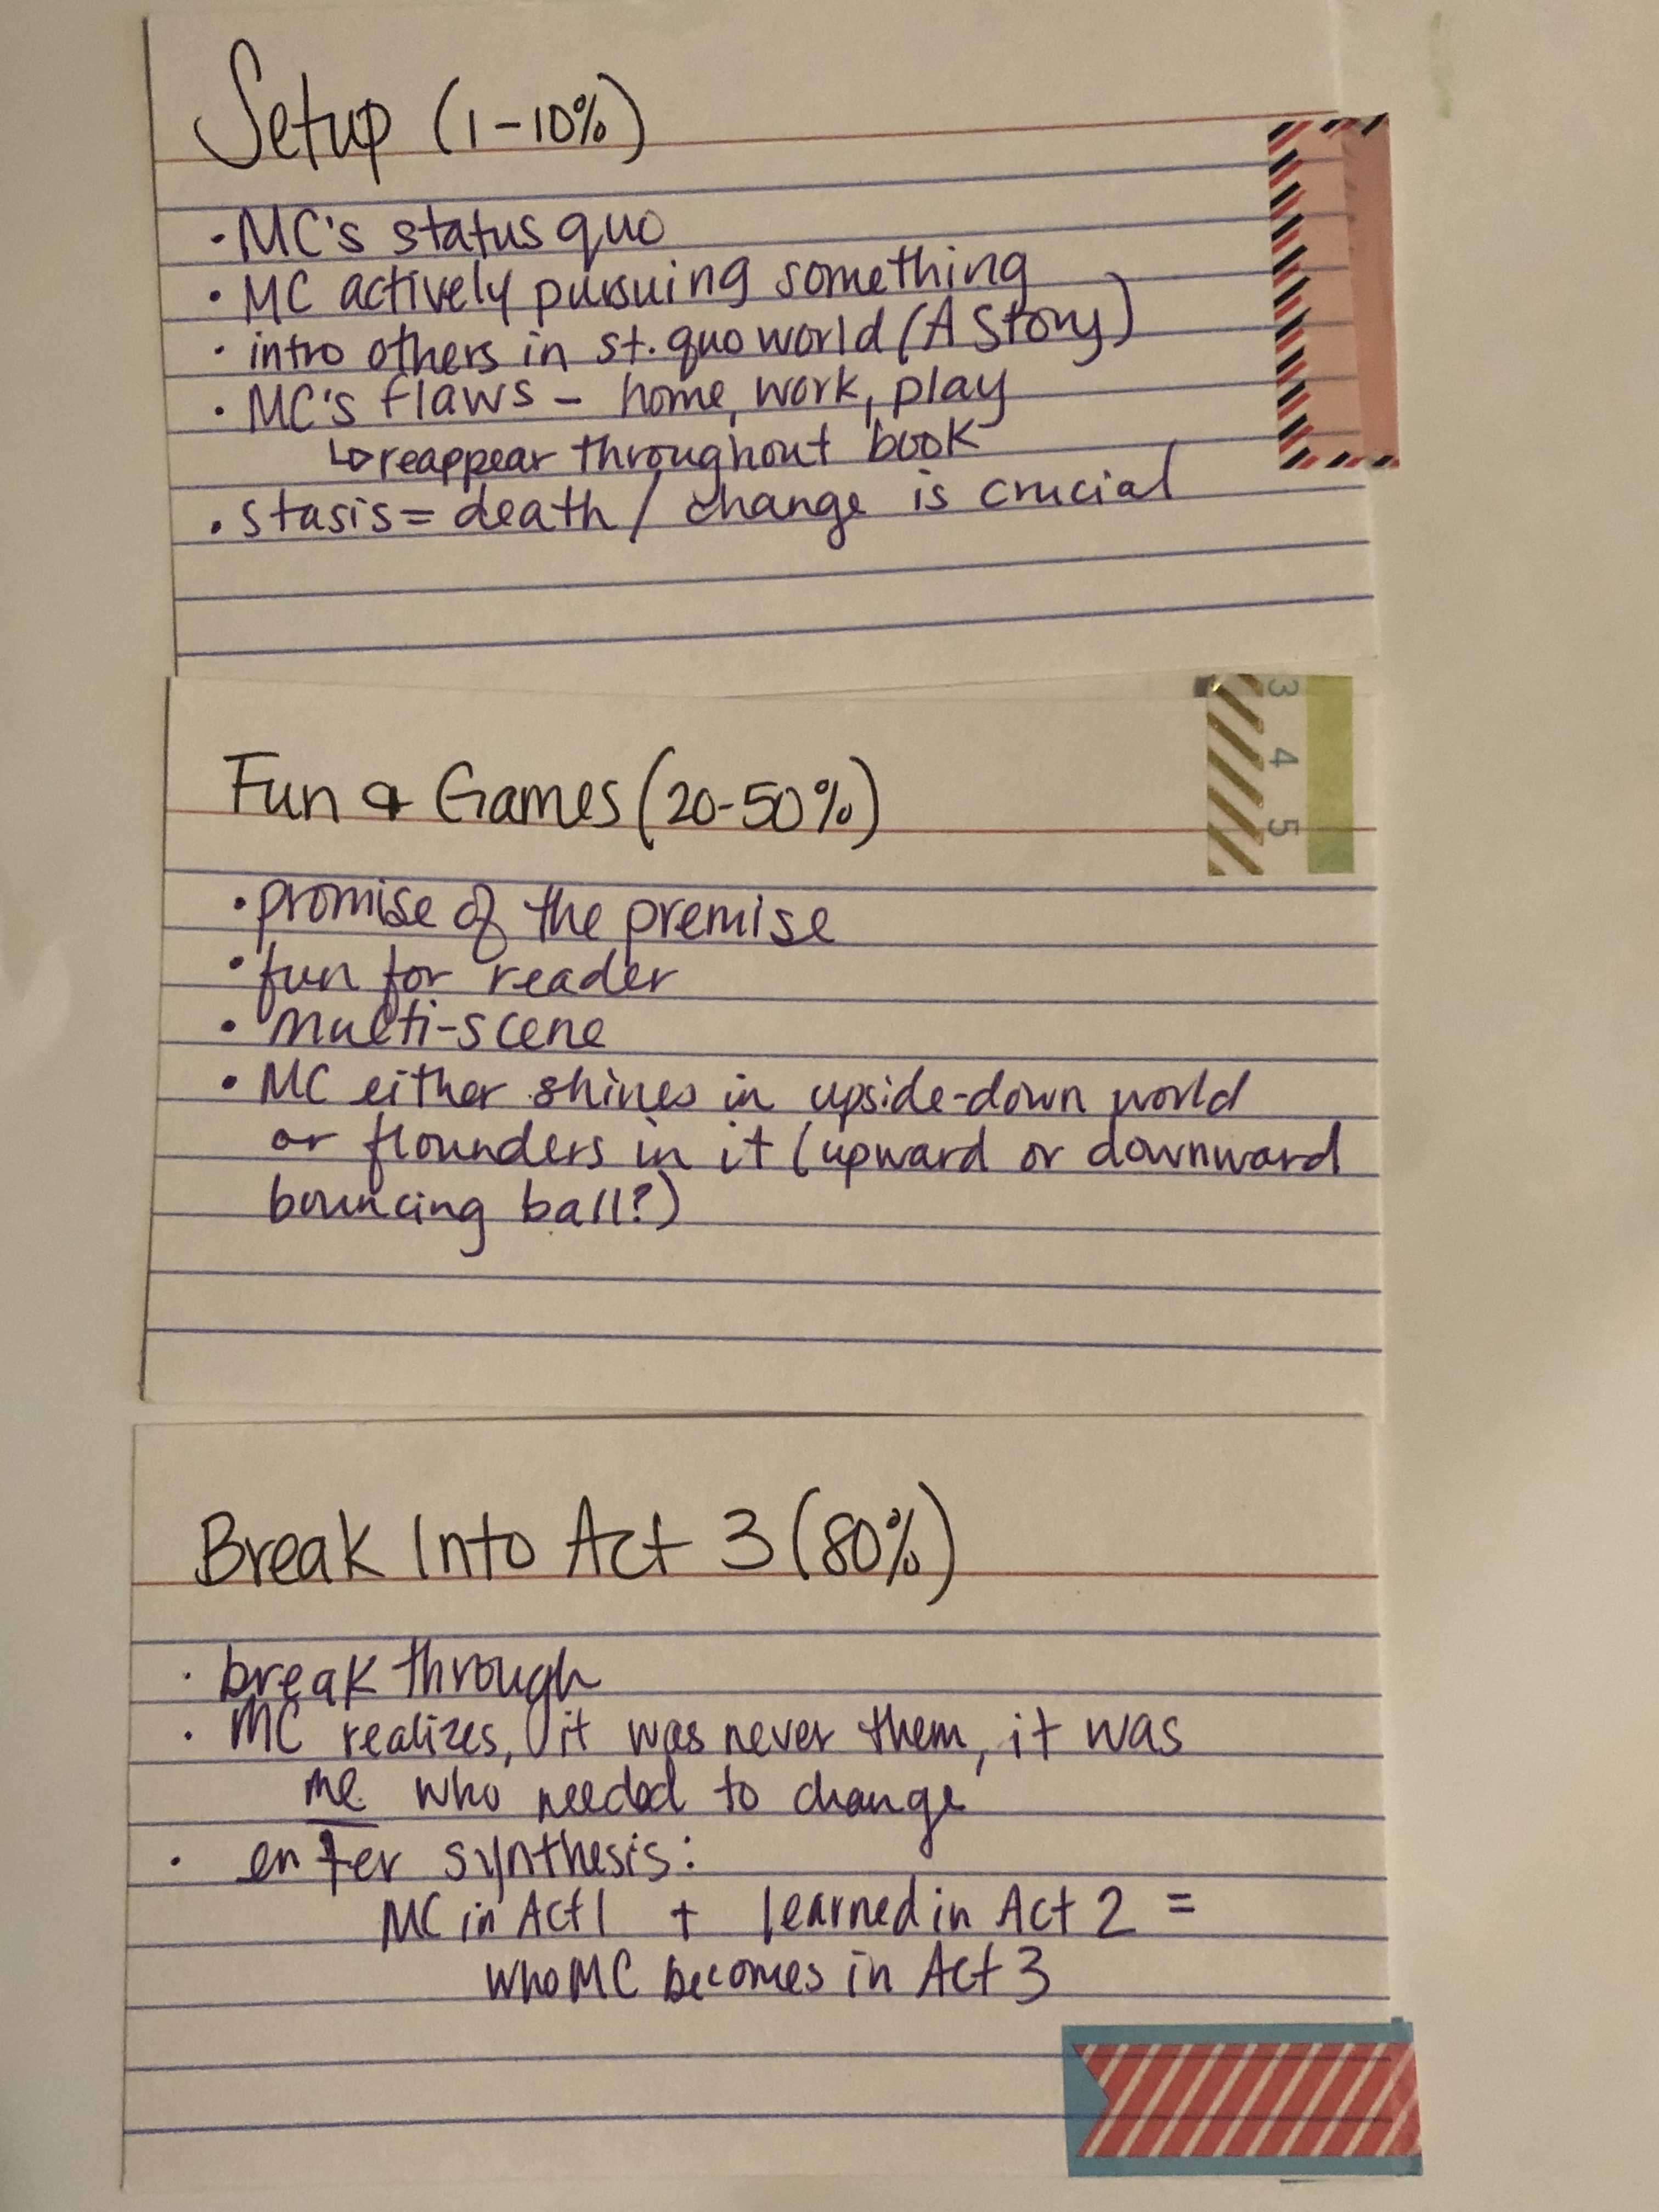 Setup (1-10%)
• MC's status quo
• MC actively pursuing something
• intro others in st. quo world (A Story)
• MC's flaws – home, work, play
↳ reappear throughout book
• stasis = death / change is crucial
3
4
5
Fun & Games (20-50%)
• promise of the premise
• fun for reader
• multi-scene
• MC either shines in upside-down world
or flounders in it (upward or downward
bouncing ball?)
Break Into Act 3 (80%)
• break through
• MC realizes, it was never them, it was
me who needed to change
• enter synthesis:
MC in Act 1 + learned in Act 2 =
who MC becomes in Act 3